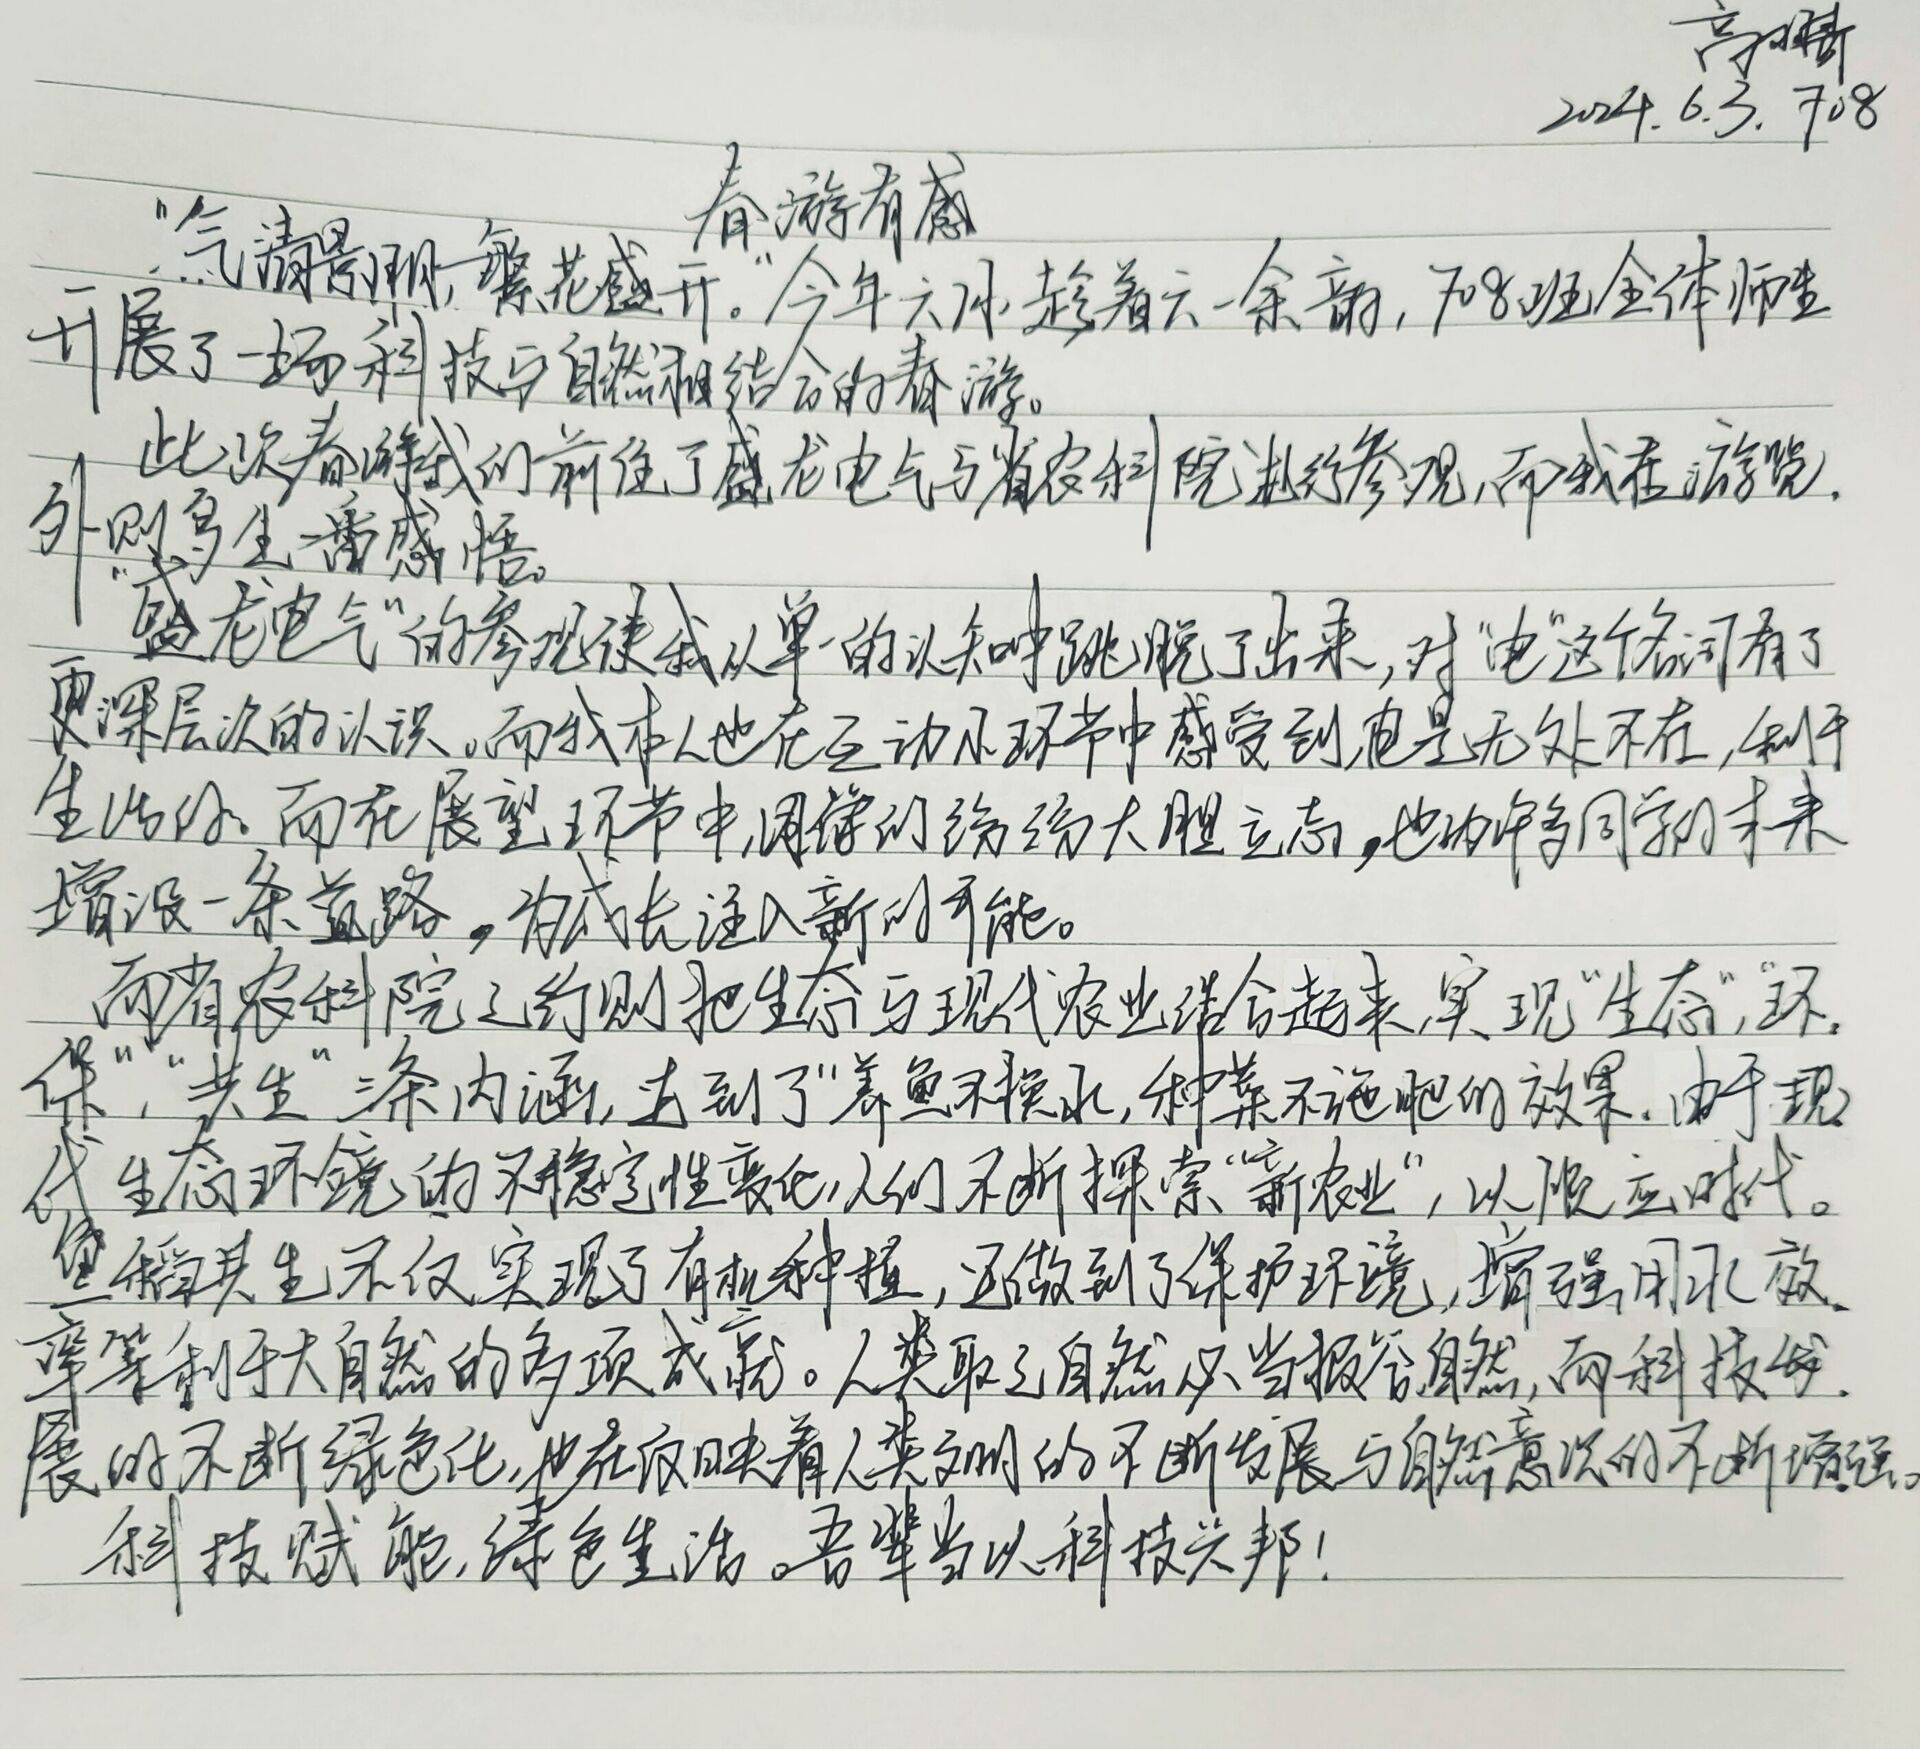 2024.6.3. 708
春游有感
"气清景明,繁花盛开。"今年六月,趁着六一余韵,708班全体师生
开展了一场科技与自然相结合的春游。
此次春游我们前往了盛龙电气与省农科院进行参观,而我在游览
外则多生一番感悟。
"盛龙电气"的参观使我从单一的认知中跳脱了出来,对"电"这个名词有了
更深层次的认识。而我本人也在互动小环节中感受到电是无处不在,利于
生活的。而在展望环节中,同学们纷纷大胆立志,也为许多同学的未来
增设一条益路,为成长注入新的可能。
而省农科院之行则把生态与现代农业结合起来,实现"生态","环
保","共生"三条内涵,达到了"养鱼不换水,种菜不施肥的效果.由于现
代生态环境的不稳定性变化,人们不断探索"新农业",以顺应时代。
鱼稻共生不仅实现了有机种植,还做到了保护环境,增强用水效
率等利于大自然的多项成就。人类取之自然必当报答自然,而科技发
展的不断绿色化,也在反映着人类文明的不断发展与自然意识的不断增强。
科技赋能,绿色生活。吾辈当以科技兴邦!